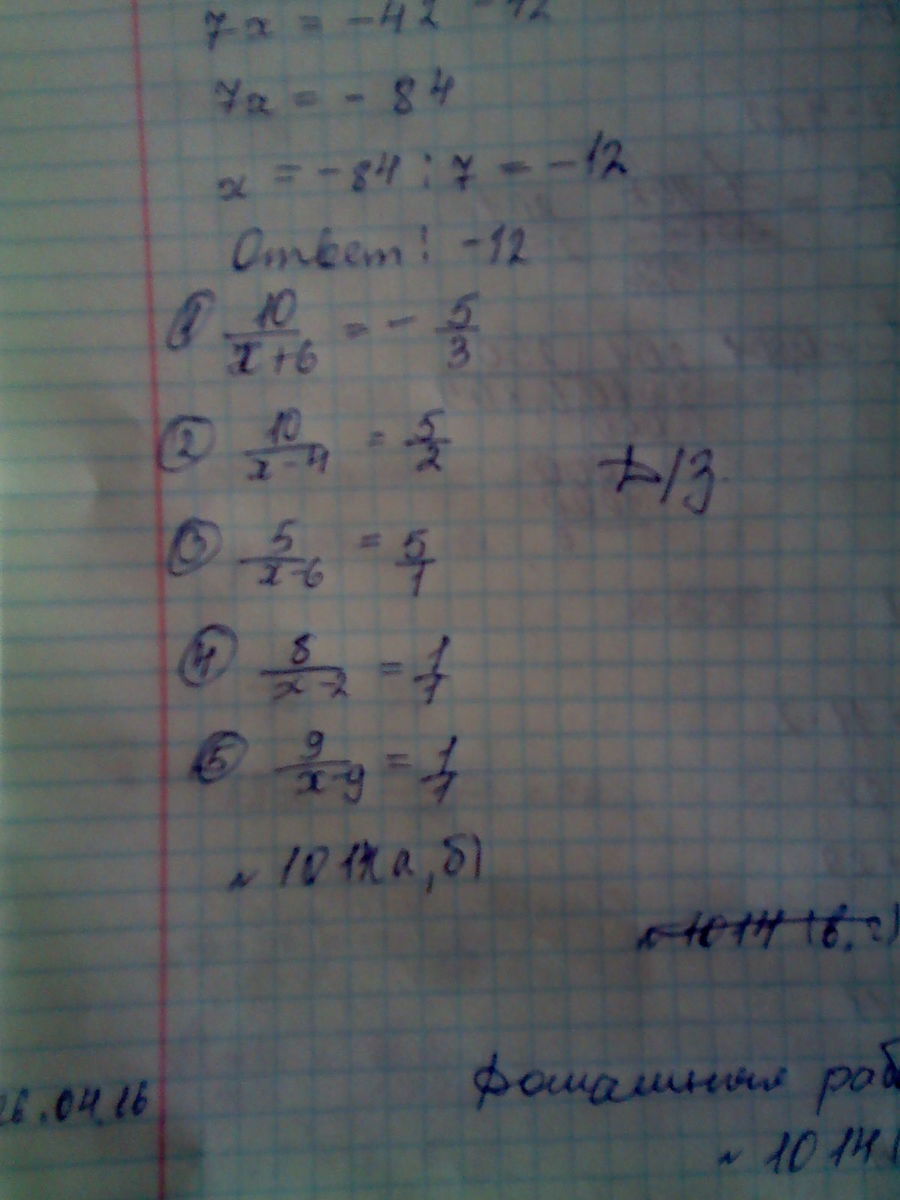 7x = -42 - 42
7x = - 84
x = -84 : 7 = -12
Ответ: -12
① 10/(x+6) = - 5/3
② 10/(x-4) = 5/2
Д/З.
③ 5/(x-6) = 5/1
④ 8/(x-2) = 1/7
⑤ 9/(x-9) = 1/7
~ 1014(а,б)
~ 1014 (в,г)
26.04.16
Домашняя раб
~ 1014(